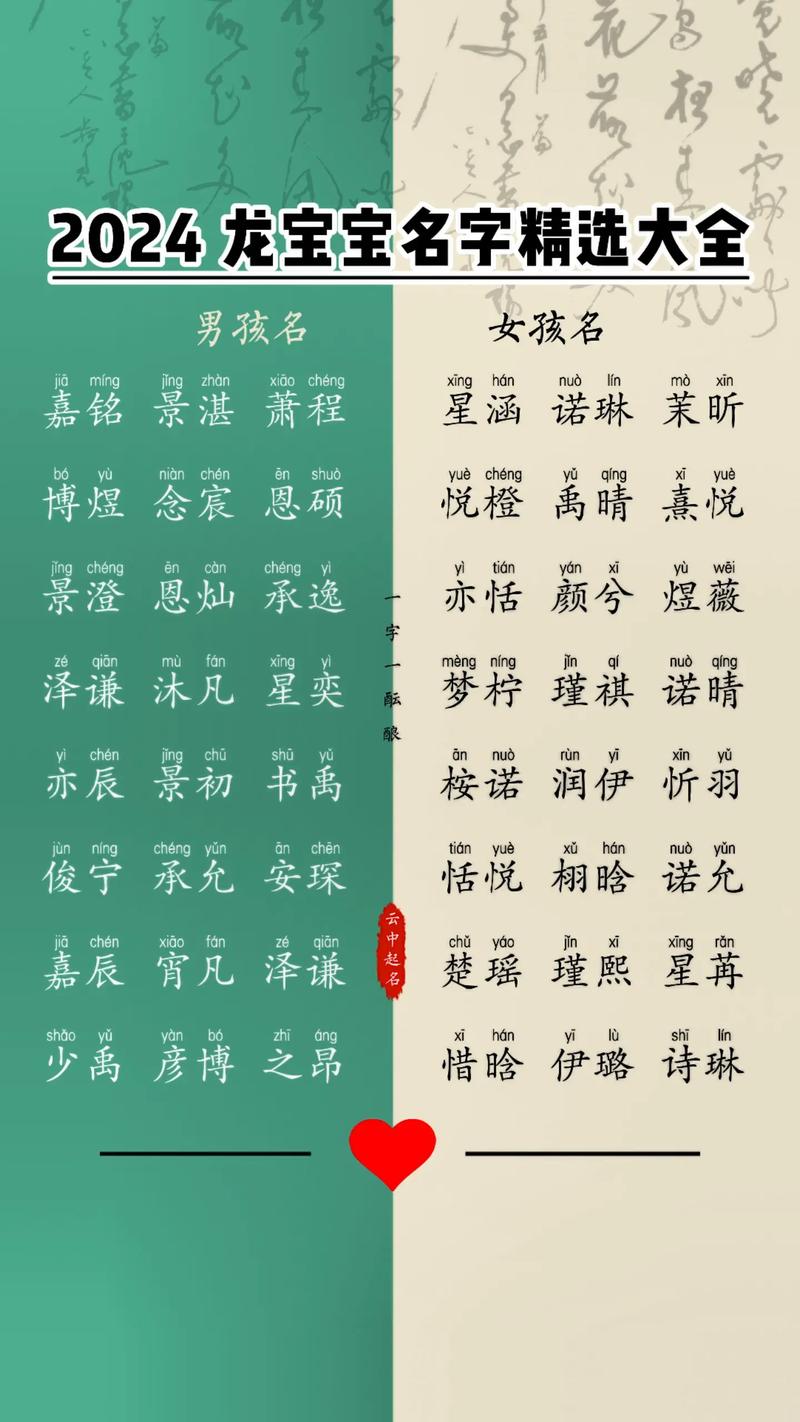 2024 龙宝宝名字精选大全
男孩名
jiā míng jǐng zhàn xiāo chéng
嘉铭 景湛 萧程
bó yù niàn chén ēn shuò
博煜 念宸 恩硕
jǐng chéng ēn càn chéng yì
景澄 恩灿 承逸
zé qiān mù fán xīng yì
泽谦 沐凡 星奕
yì chén jǐng chū shū yǔ
亦辰 景初 书禹
jùn níng chéng yǔn ān chēn
俊宁 承允 安琛
jiā chén xiāo fán zé qiān
嘉辰 宵凡 泽谦
shǎo yǔ yàn bó zhī áng
少禹 彦博 之昂
一字一酝酿
云中起名
女孩名
xīng hán nuò lín mò xīn
星涵 诺琳 茉昕
yuè chéng yǔ qíng xī yuè
悦橙 禹晴 熹悦
yì tián yán xī yù wēi
亦恬 颜兮 煜薇
mèng níng jǐn qí nuò qíng
梦柠 瑾祺 诺晴
ān nuò rùn yī xīn yǔ
桉诺 润伊 忻羽
tián yuè xǔ hán nuò yǔn
恬悦 栩晗 诺允
chǔ yáo jǐn xī xīng rǎn
楚瑶 瑾熙 星苒
xī hán yī lù shī lín
惜晗 伊璐 诗琳